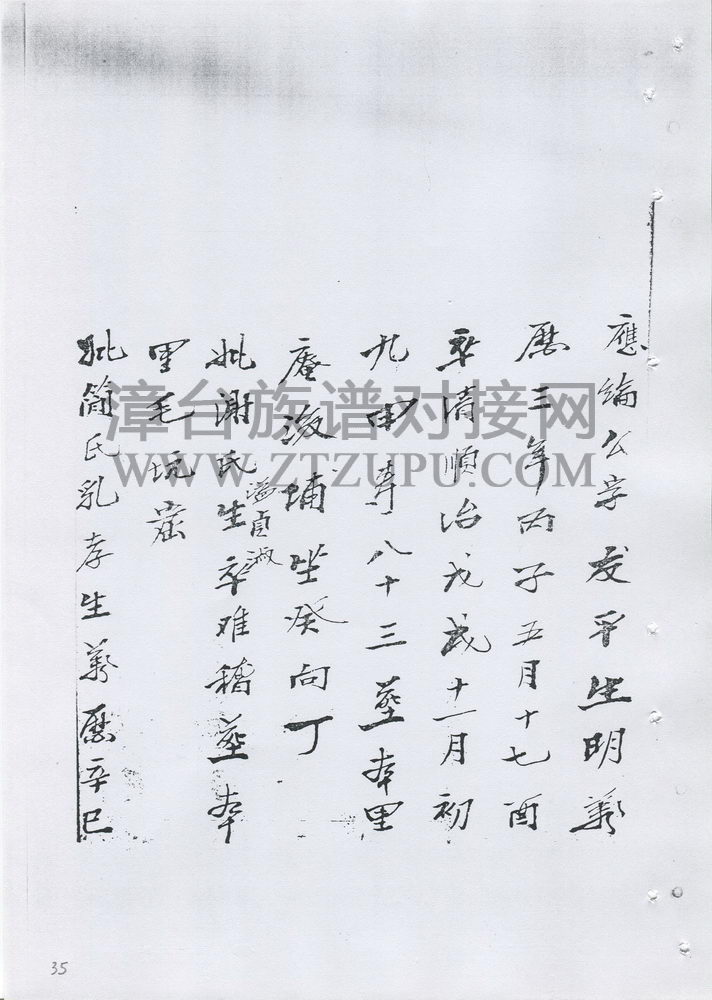 應綸公字友平生明萬
曆三年丙子五月十七酉
卒清順治戊戌十一月初
九申壽八十三葬本里
庵後埔坐癸向丁
妣謝氏謚貞淑生卒难稽葬本
里毛坑崙
妣簡氏乳孝生萬曆辛巳
漳台族谱对接网
WWW.ZTZUPU.COM
35